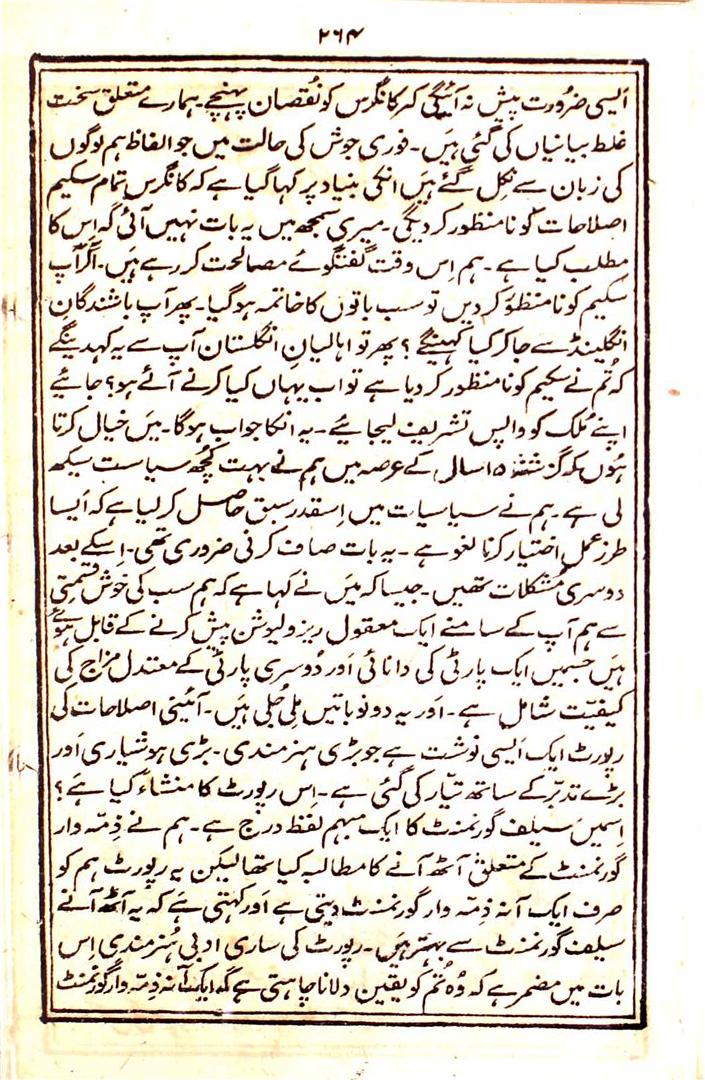 ۲۶۴
ایسی ضرورت پیش نہ آئیگی کہ کانگرس کو نقصان پہنچے۔ ہمارے متعلق سخت
غلط بیانیاں کی گئی ہیں۔ فوری جوش کی حالت میں جو الفاظ ہم لوگوں
کی زبان سے نکل گئے ہیں انکی بنیاد پر کہا گیا ہے کہ کانگرس تمام سکیم
اصلاحات کو نامنظور کر دیگی۔ میری سمجھ میں یہ بات نہیں آئی کہ اِس کا
مطلب کیا ہے۔ ہم اِس وقت گفتگوئے مصالحت کر رہے ہیں۔ اگر آپ
سکیم کو نامنظور کر دیں تو سب باتوں کا خاتمہ ہو گیا۔ پھر آپ باشندگانِ
انگلینڈ سے جا کر کیا کہینگے؟ پھر تو اہالیانِ انگلستان آپ سے یہ کہدینگے
کہ تُم نے سکیم کو نامنظور کر دیا ہے تو اب یہاں کیا کرنے آئے ہو؟ جائیے
اپنے مُلک کو واپس تشریف لیجائیے۔ یہ انکا جواب ہوگا۔ میں خیال کرتا
ہُوں کہ گزشتہ ۱۵ سال کے عرصہ میں ہم نے بہت کُچھ سیاست سیکھ
لی ہے۔ ہم نے سیاسیات میں اِسقدر سبق حاصل کر لیا ہے کہ ایسا
طرز عمل اختیار کرنا لغو ہے۔ یہ بات صاف کرنی ضروری تھی۔ اِسکے بعد
دوسری مُشکلات تھیں۔ جیسا کہ میں نے کہا ہے کہ ہم سب کی خوش قسمتی
سے ہم آپ کے سامنے ایک معقول ریزولیوشن پیش کرنے کے قابل ہوئے
ہیں جسمیں ایک پارٹی کی دانائی اور دُوسری پارٹی کے معتدل مزاج کی
کیفیّت شامل ہے۔ اَور یہ دونو باتیں مِلی جُلی ہیں۔ آئینی اصلاحات کی
رپورٹ ایک اَیسی نوشت ہے جو بڑی ہنرمندی۔ بڑی ہوشیاری اَور
بڑے تدبّر کے ساتھ تیّار کی گئی ہے۔ اِس رپورٹ کا منشاء کیا ہے؟
اِسمیں سیلف گورنمنٹ کا ایک مبہم لفظ درج ہے۔ ہم نے ذِمّہ وار
گورنمنٹ کے متعلق آٹھ آنے کا مطالبہ کیا تھا لیکن یہ رپورٹ ہم کو
صرف ایک آنہ ذِمّہ وار گورنمنٹ دیتی ہے اَور کہتی ہے کہ یہ آٹھ آنے
سیلف گورنمنٹ سے بہتر ہیں۔ رپورٹ کی ساری ادبی ہُنرمندی اِس
بات میں مضمر ہے کہ وُہ تُم کو یقین دلانا چاہتی ہے کہ ایک آنہ ذِمّہ وار گورنمنٹ